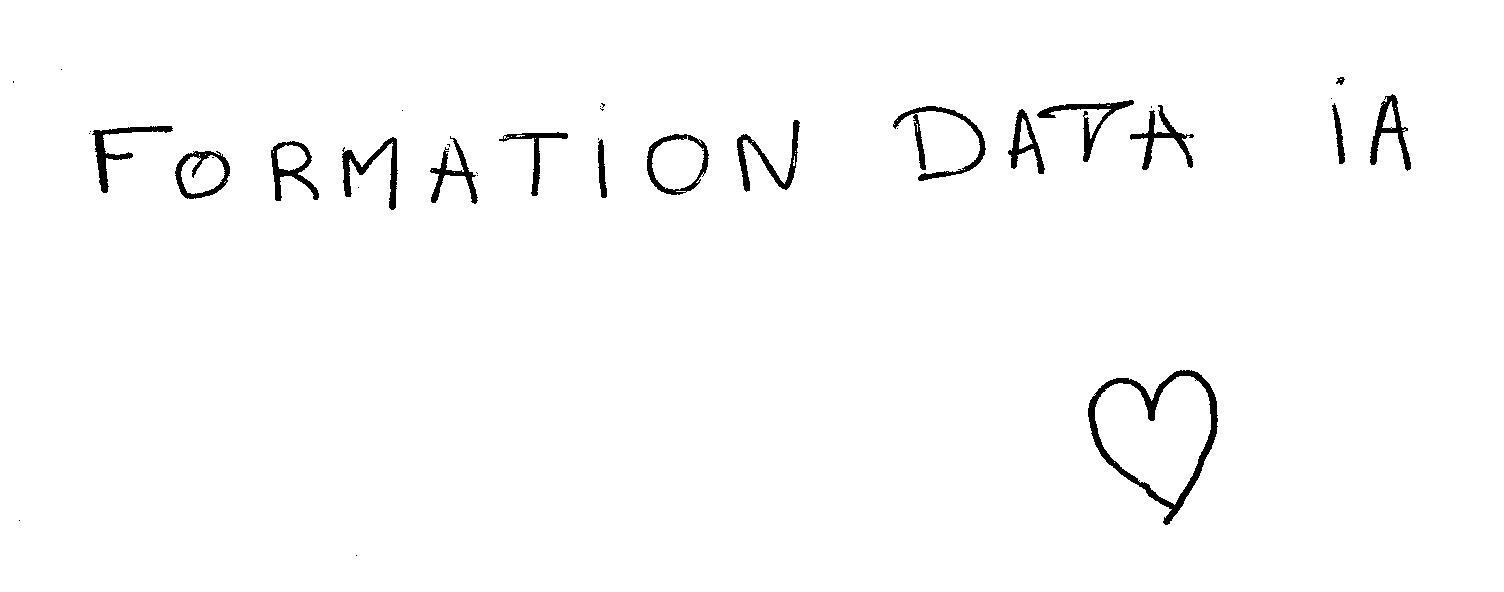 FORMATION DATA iA